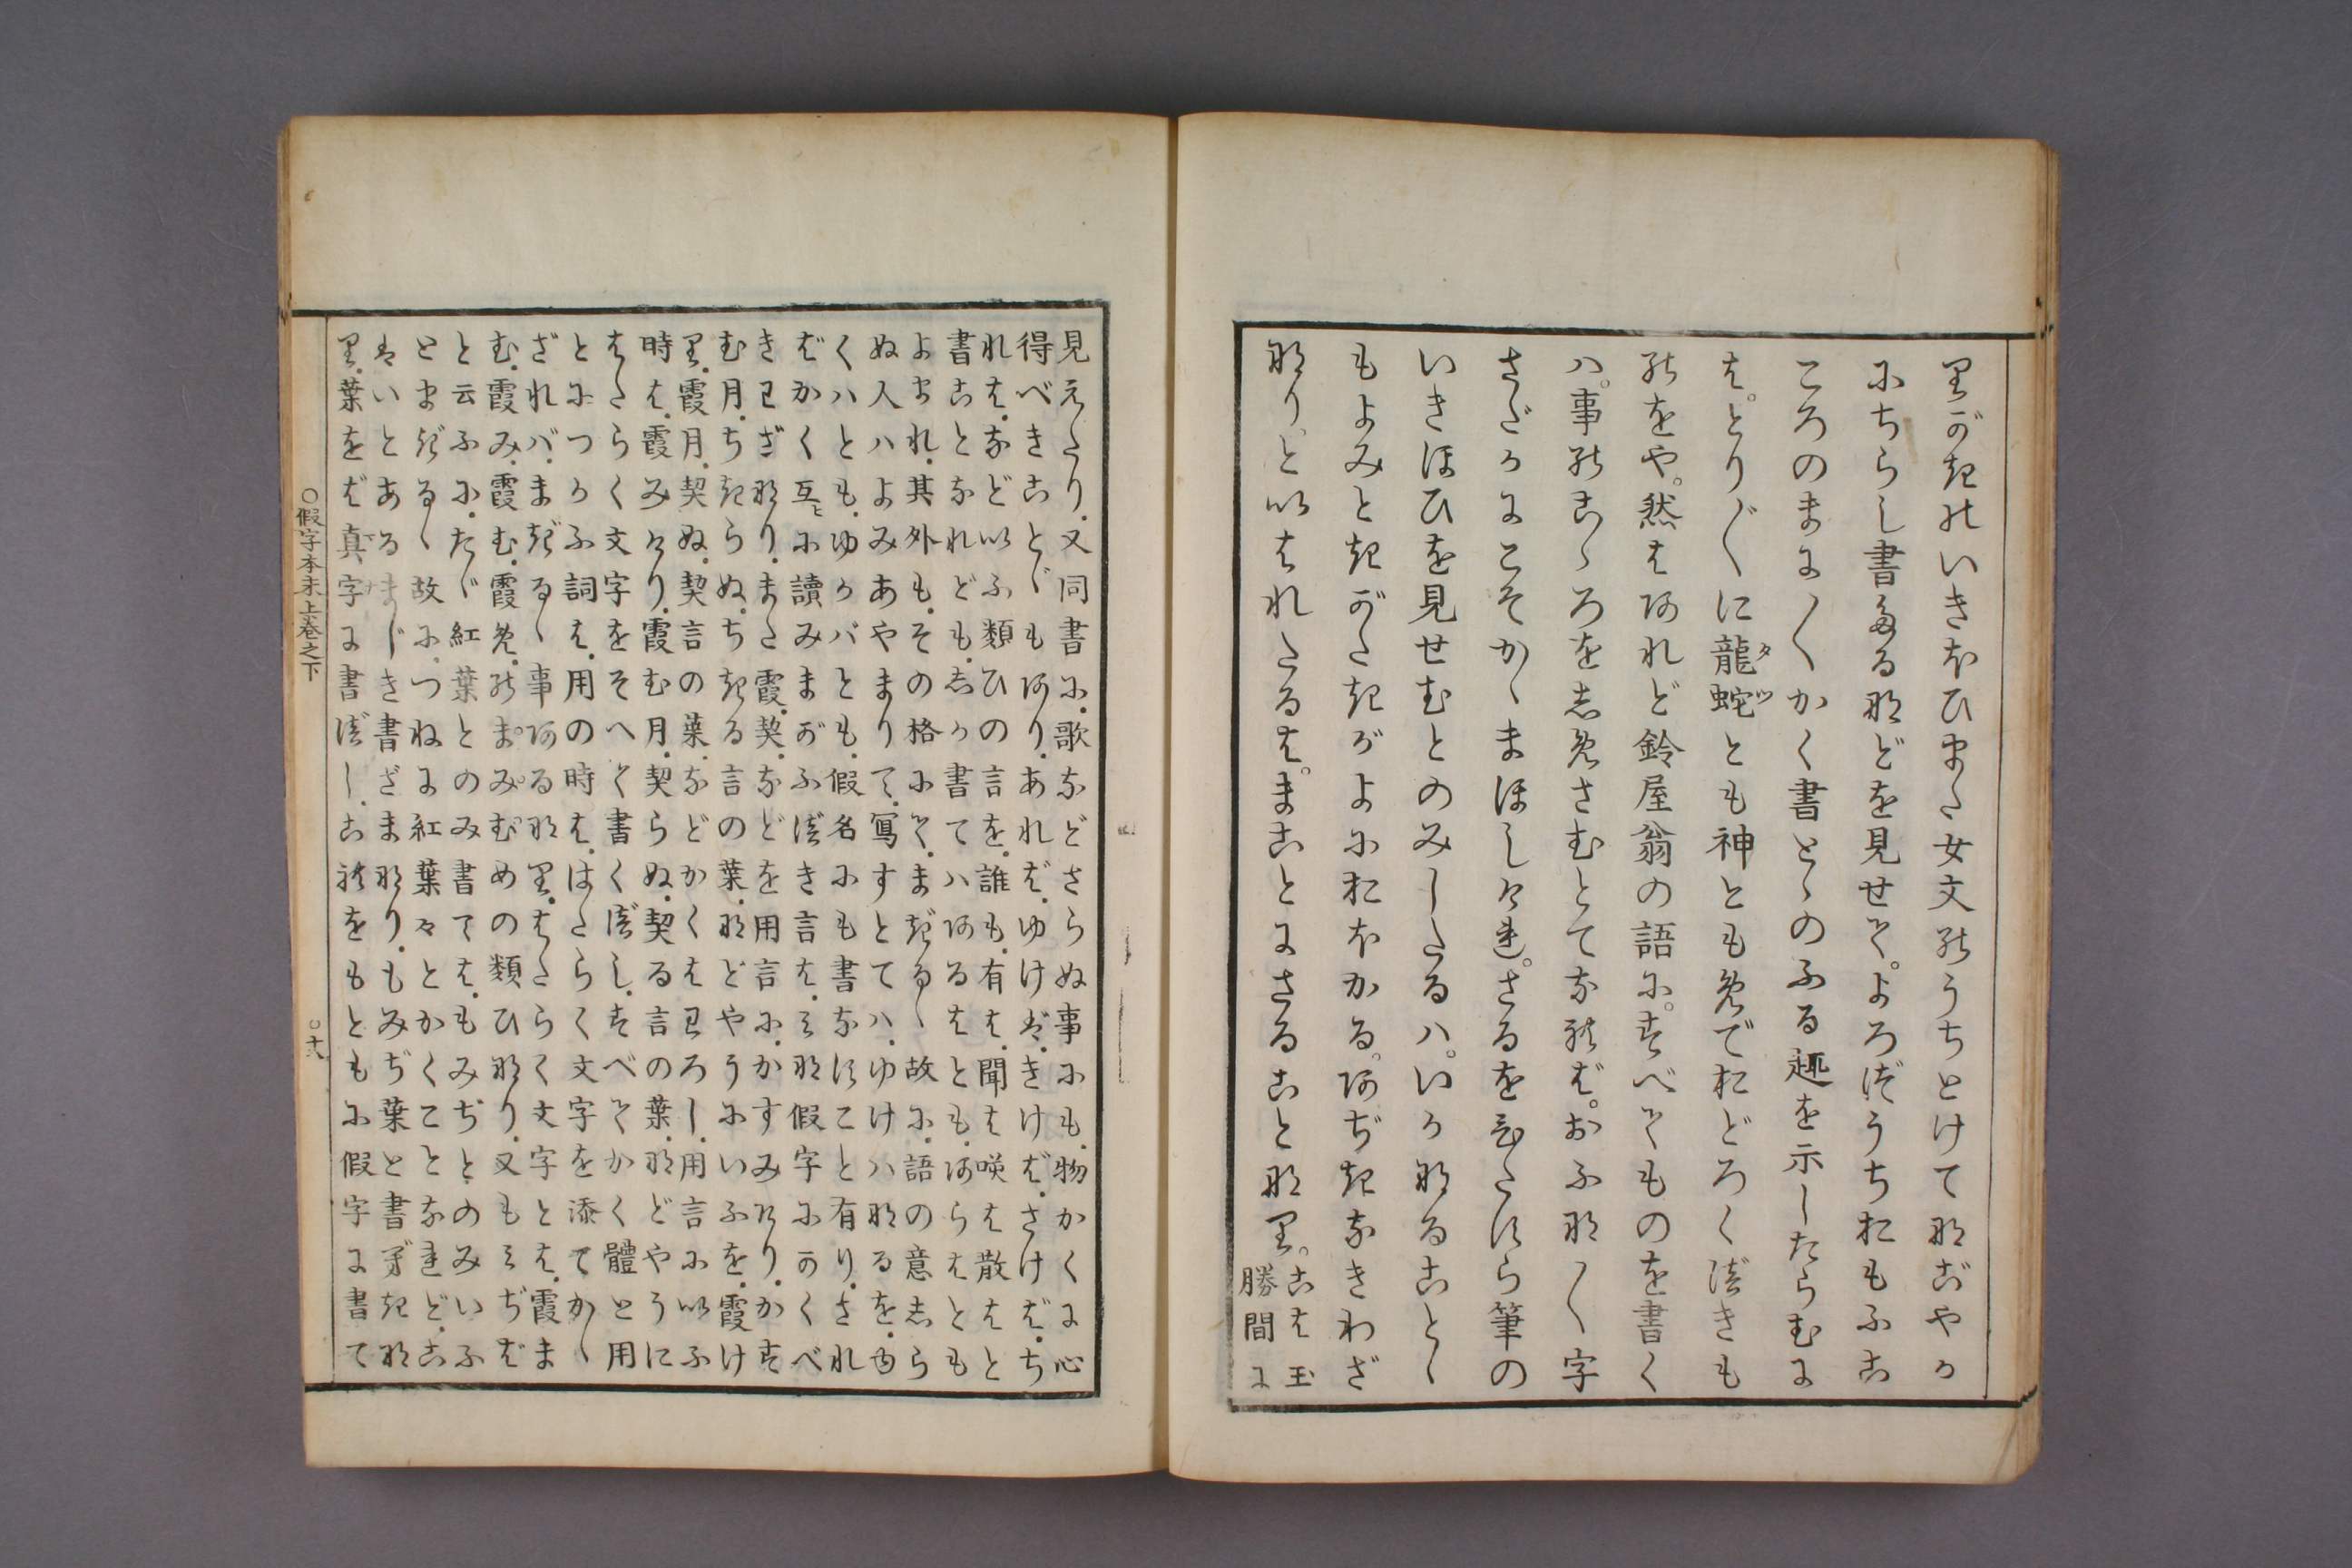 りがきのいきほひまた女文のうちとけてなごやか
にちらし書たるなどを見せて。よろづうちおもふこ
ころのまに〳〵かく書とゝのふる趣を示したらむに
は。とり〴〵に龍蛇タツとも神ともめでおどろくべきも
のをや。然はあれど鈴屋翁の語に。すべてものを書く
ハ。事のこゝろをしめさむとてなれば。おふな〳〵字
さだかにこそかゝまほしけれ。さるをひたすら筆の
いきほひを見せむとのみしたるハ。いかなることゝ
もよみときがたきがよにおほかる。あぢきなきわざ
なり。といはれたるは。まことにさることなり。こは玉
勝間に
見えたり。又同書に。歌などさらぬ事にも。物かくに心
得べきことゞもあり。あれば。ゆけば。きけば。さけば。ち
れは。などいふ類ひの言を。誰も。有は。聞は咲は散はと
書ことなれども。しか書てハあるはとも。あらはとも
よまれ。其外も。その格にて。まぎるゝ故に。語の意しら
ぬ人ハよみあやまりて。寫すとてハ。ゆけハなるを。由
くハとも。ゆかバとも。假名にも書なすこと有り。され
ばかく互に讀みまがふべき言は。みな假字にかくべ
きわざなり。また霞。契。などを用言に。かすみけり。かす
む月。ちぎらぬ。ちぎる言の葉。などやうにいふを。霞け
り。霞月。契ぬ。契言の葉などかくはわろし。用言にいふ
時は。霞みけり。霞む月。契らぬ。契る言の葉。などやうに
はたらく文字をそへて書くべし。すべてかく體と用
とにつかふ詞は。用の時は。はたらく文字を添てかゝ
ざれバ。まぎるゝ事あるなり。はたらく文字とは。霞ま
む。霞み。霞む。霞め。のま。み。む。めの類ひなり。又もみぢば
と云ふに。たゞ紅葉とのみ書ては。もみぢとのみいふ
とまぎるゝ故に。つねに紅葉々とかくことなれど。こ
はいとあるまじき書ざまなり。もみぢ葉と書べきな
り。葉をば真字に書べし。これをもともに假字に書て
○假字本末上巻之下
○十八